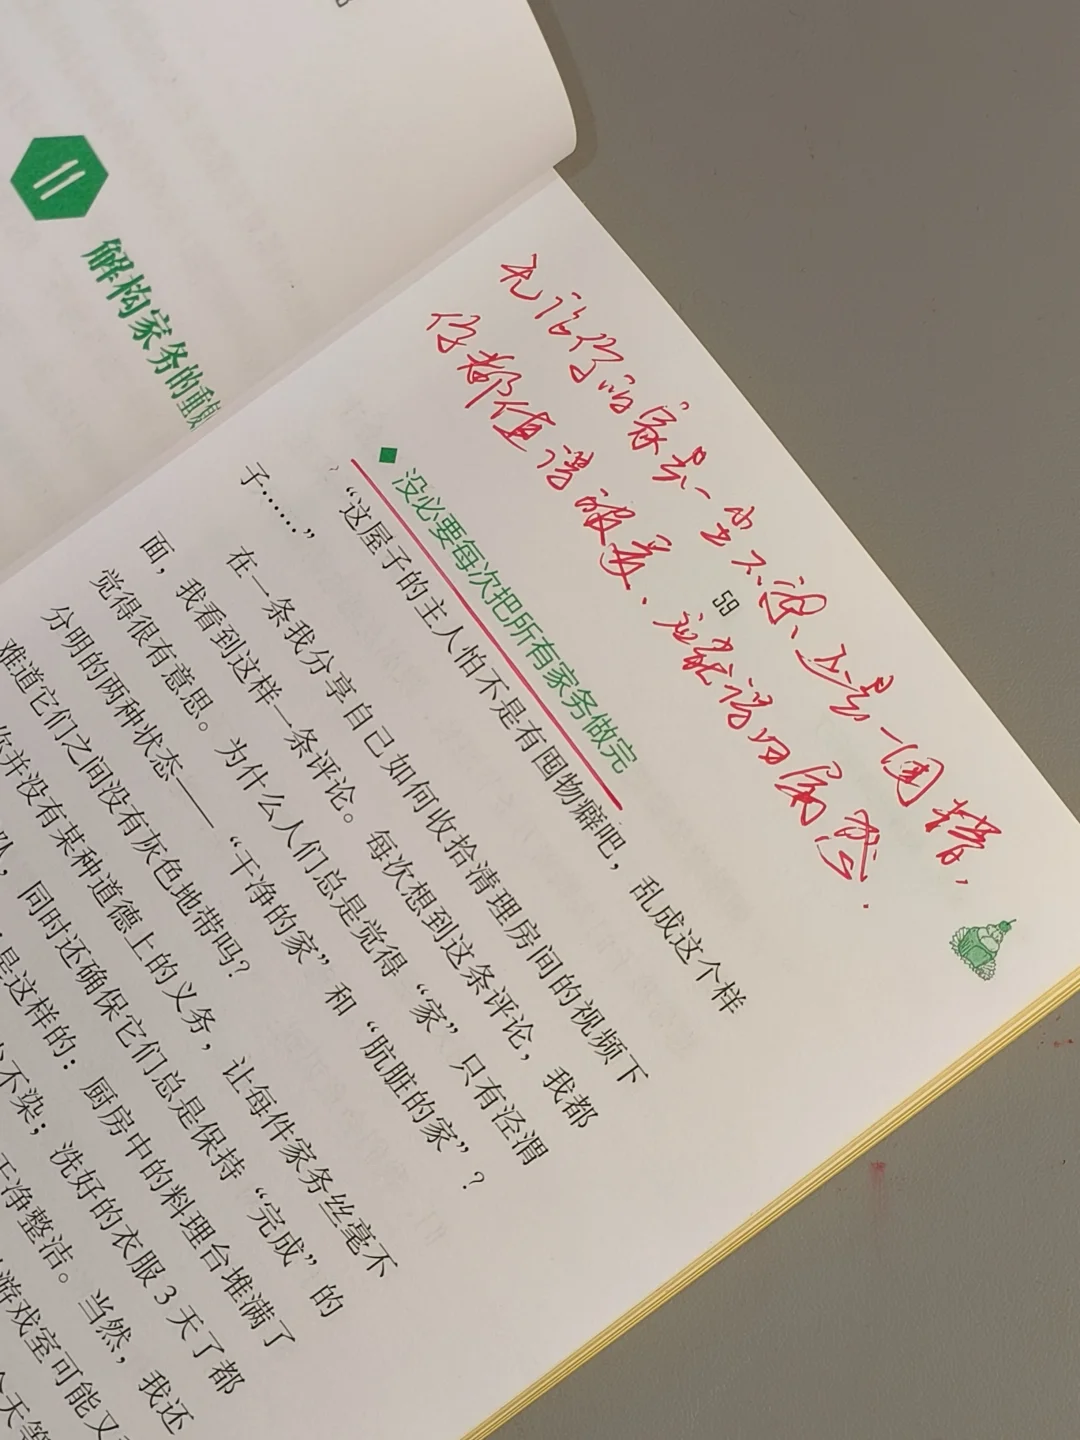 11
解构家务的
无论你的家是一尘不染，还是一团糟，
你都值得被爱、应获得归属感.
59
没必要每次把所有家务做完
“这屋子的主人怕不是有囤物癖吧，乱成这个样
子……”
在一条我分享自己如何收拾清理房间的视频下
面，我看到这样一条评论。每次想到这条评论，我都
觉得很有意思。为什么人们总是觉得“家”只有泾渭
分明的两种状态——“干净的家”和“肮脏的家”？
难道它们之间没有灰色地带吗？
你并没有某种道德上的义务，让每件家务丝毫不
，同时还确保它们总是保持“完成”的
是这样的：厨房中的料理台堆满了
不染；洗好的衣服3天了都
干净整洁。当然，我还
游戏室可能又